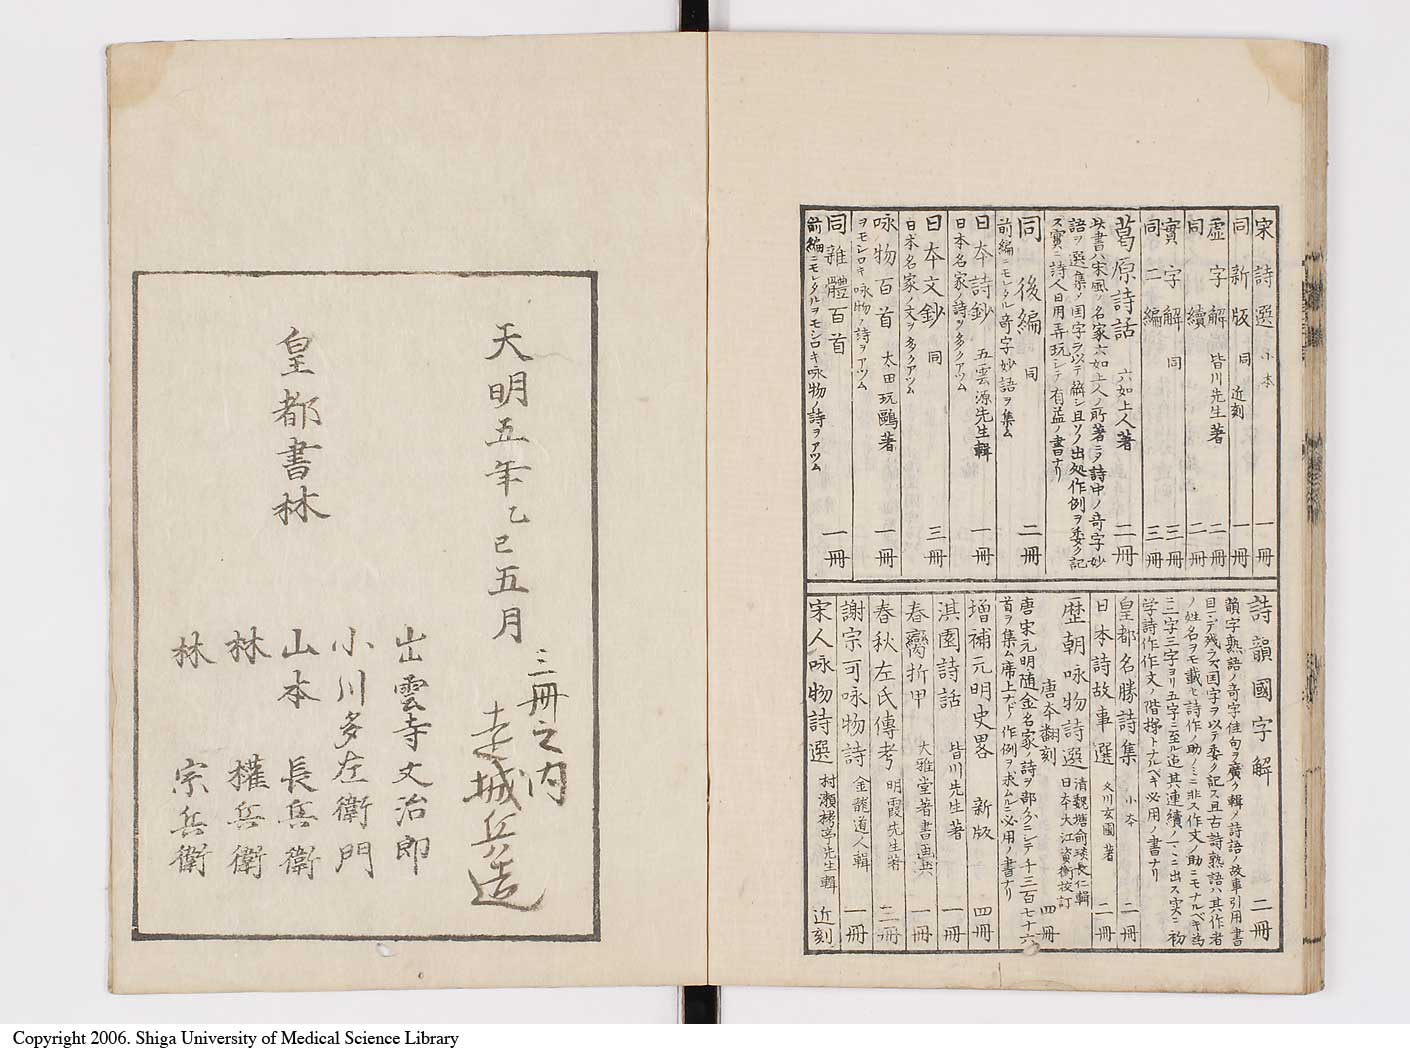 宋詩選 小本 一冊
同新版 同 近刻 一冊
虚字解 皆川先生著 二冊
同續 二冊
實字解 同 三冊
同二編 三冊
葛原詩話 六如上人著 二冊
此書ハ宋風ノ名家六如上人ノ所著ニテ詩中ノ奇字妙
語ヲ選集メ国字ヲ以テ解シ且ソノ出処作例ヲ委ク記
ス實ニ詩人日用弄玩シテ有益ノ書ナリ
同後編 同 二冊
前編ニモレタル奇字妙語ヲ集ム
日本詩鈔 五雲源先生輯 一冊
日本名家ノ詩ヲ多クアツム
日本文鈔 同 三冊
日本名家ノ文ヲ多クアツム
咏物百首 太田玩鷗著 一冊
ヲモシロキ咏物ノ詩ヲアツム
同雜體百首 一冊
前編ニモレタルヲモシロキ咏物ノ詩ヲアツム
詩韻國字解 二冊
韻字熟語ノ奇字佳句ヲ廣ク輯ノ詩語ノ故事引用書
目ニデ残ラズ国字ヲ以テ委ク記ス且古詩熟語ハ其ノ作者
ノ姓名ヲモ載セ詩作ノ助ノミニ非ス作文ノ助ニモナルベキ為
三字三字ヨリ五字ニ至ル迠其連續ノマヽニ出ス実ニ初
学詩作作文ノ階梯トナルベキ必用ノ書ナリ
皇都名勝詩集 小本 二冊
日本詩故事選 文川玄圃著 二冊
歴朝咏物詩選 清魏塘俞琰長仁輯 日本大江資衡校訂 四冊
唐本翻刻
唐宋元明随金名家ノ詩ヲ部分ニシテ千三百七十六
首ヲ集ム席上ナドノ作例ヲ求ムルニ必用ノ書ナリ
増補元明史畧 新版 四冊
淇園詩話 皆川先生著 一冊
春臠折甲 大雅堂著書画共 一冊
春秋左氏傳考 明霞先生著 三冊
謝宗可咏物詩 金龍道人輯 一冊
宋人咏物詩選 村瀬栲亭先生輯 近刻
天明五年乙巳五月
三冊之内
走城兵造
皇都書林
出雲寺文治郎
小川多左衛門
山本長兵衛
林權兵衛
林宗兵衛
Copyright 2006. Shiga University of Medical Science Library